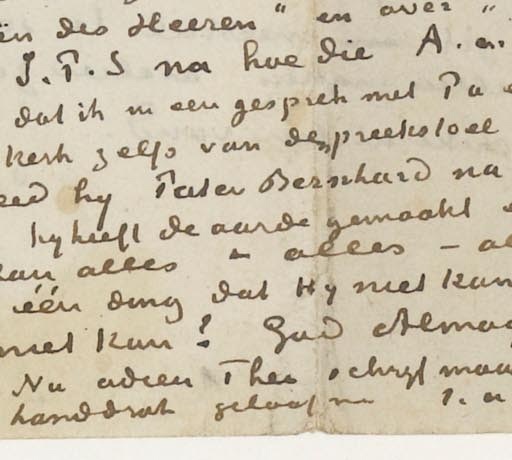 ën des Heeren" en over "
J.P.S na hoe die A. a.
dat ik in een gesprek met Pa e
kerk zelfs van de preekstoel
eed hy Pater Bernhard na
hy heeft de aarde gemaakt e
kan alles – alles – al
één ding dat Hy niet kan
niet kan? God Almac
Nu adieu Theo schryf maa
handdruk geloof me t. a